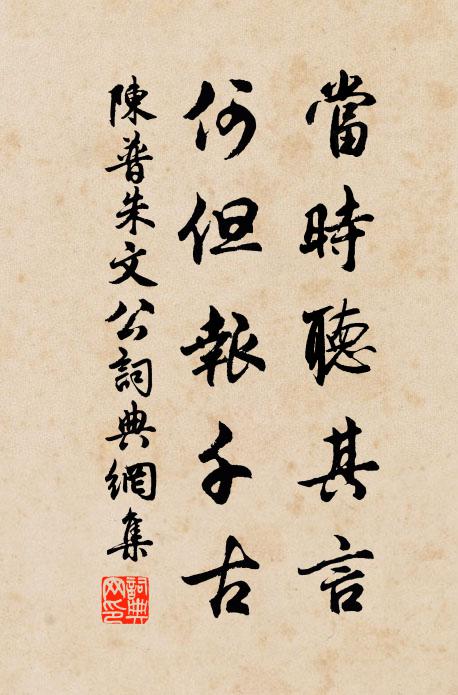 當時聽其言
何但報千古
陳普朱文公詞典網集
詞典網印